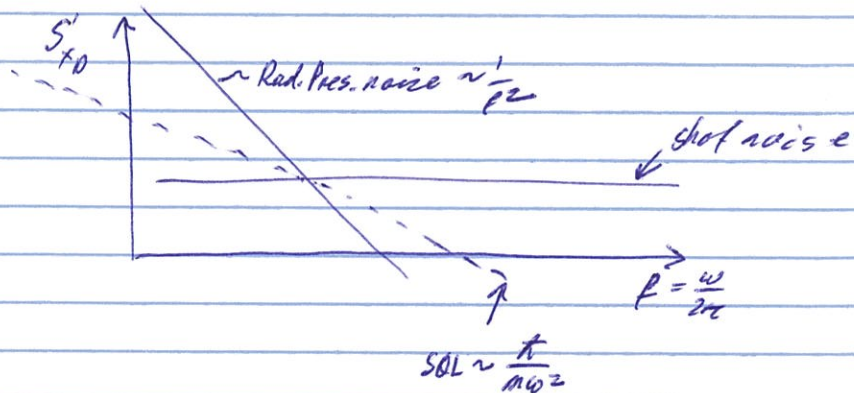 S_xp
~ Rad. Pres. noise ~ 1/f²
shot noise
f = ω/2π
SQL ~ ħ/mω²